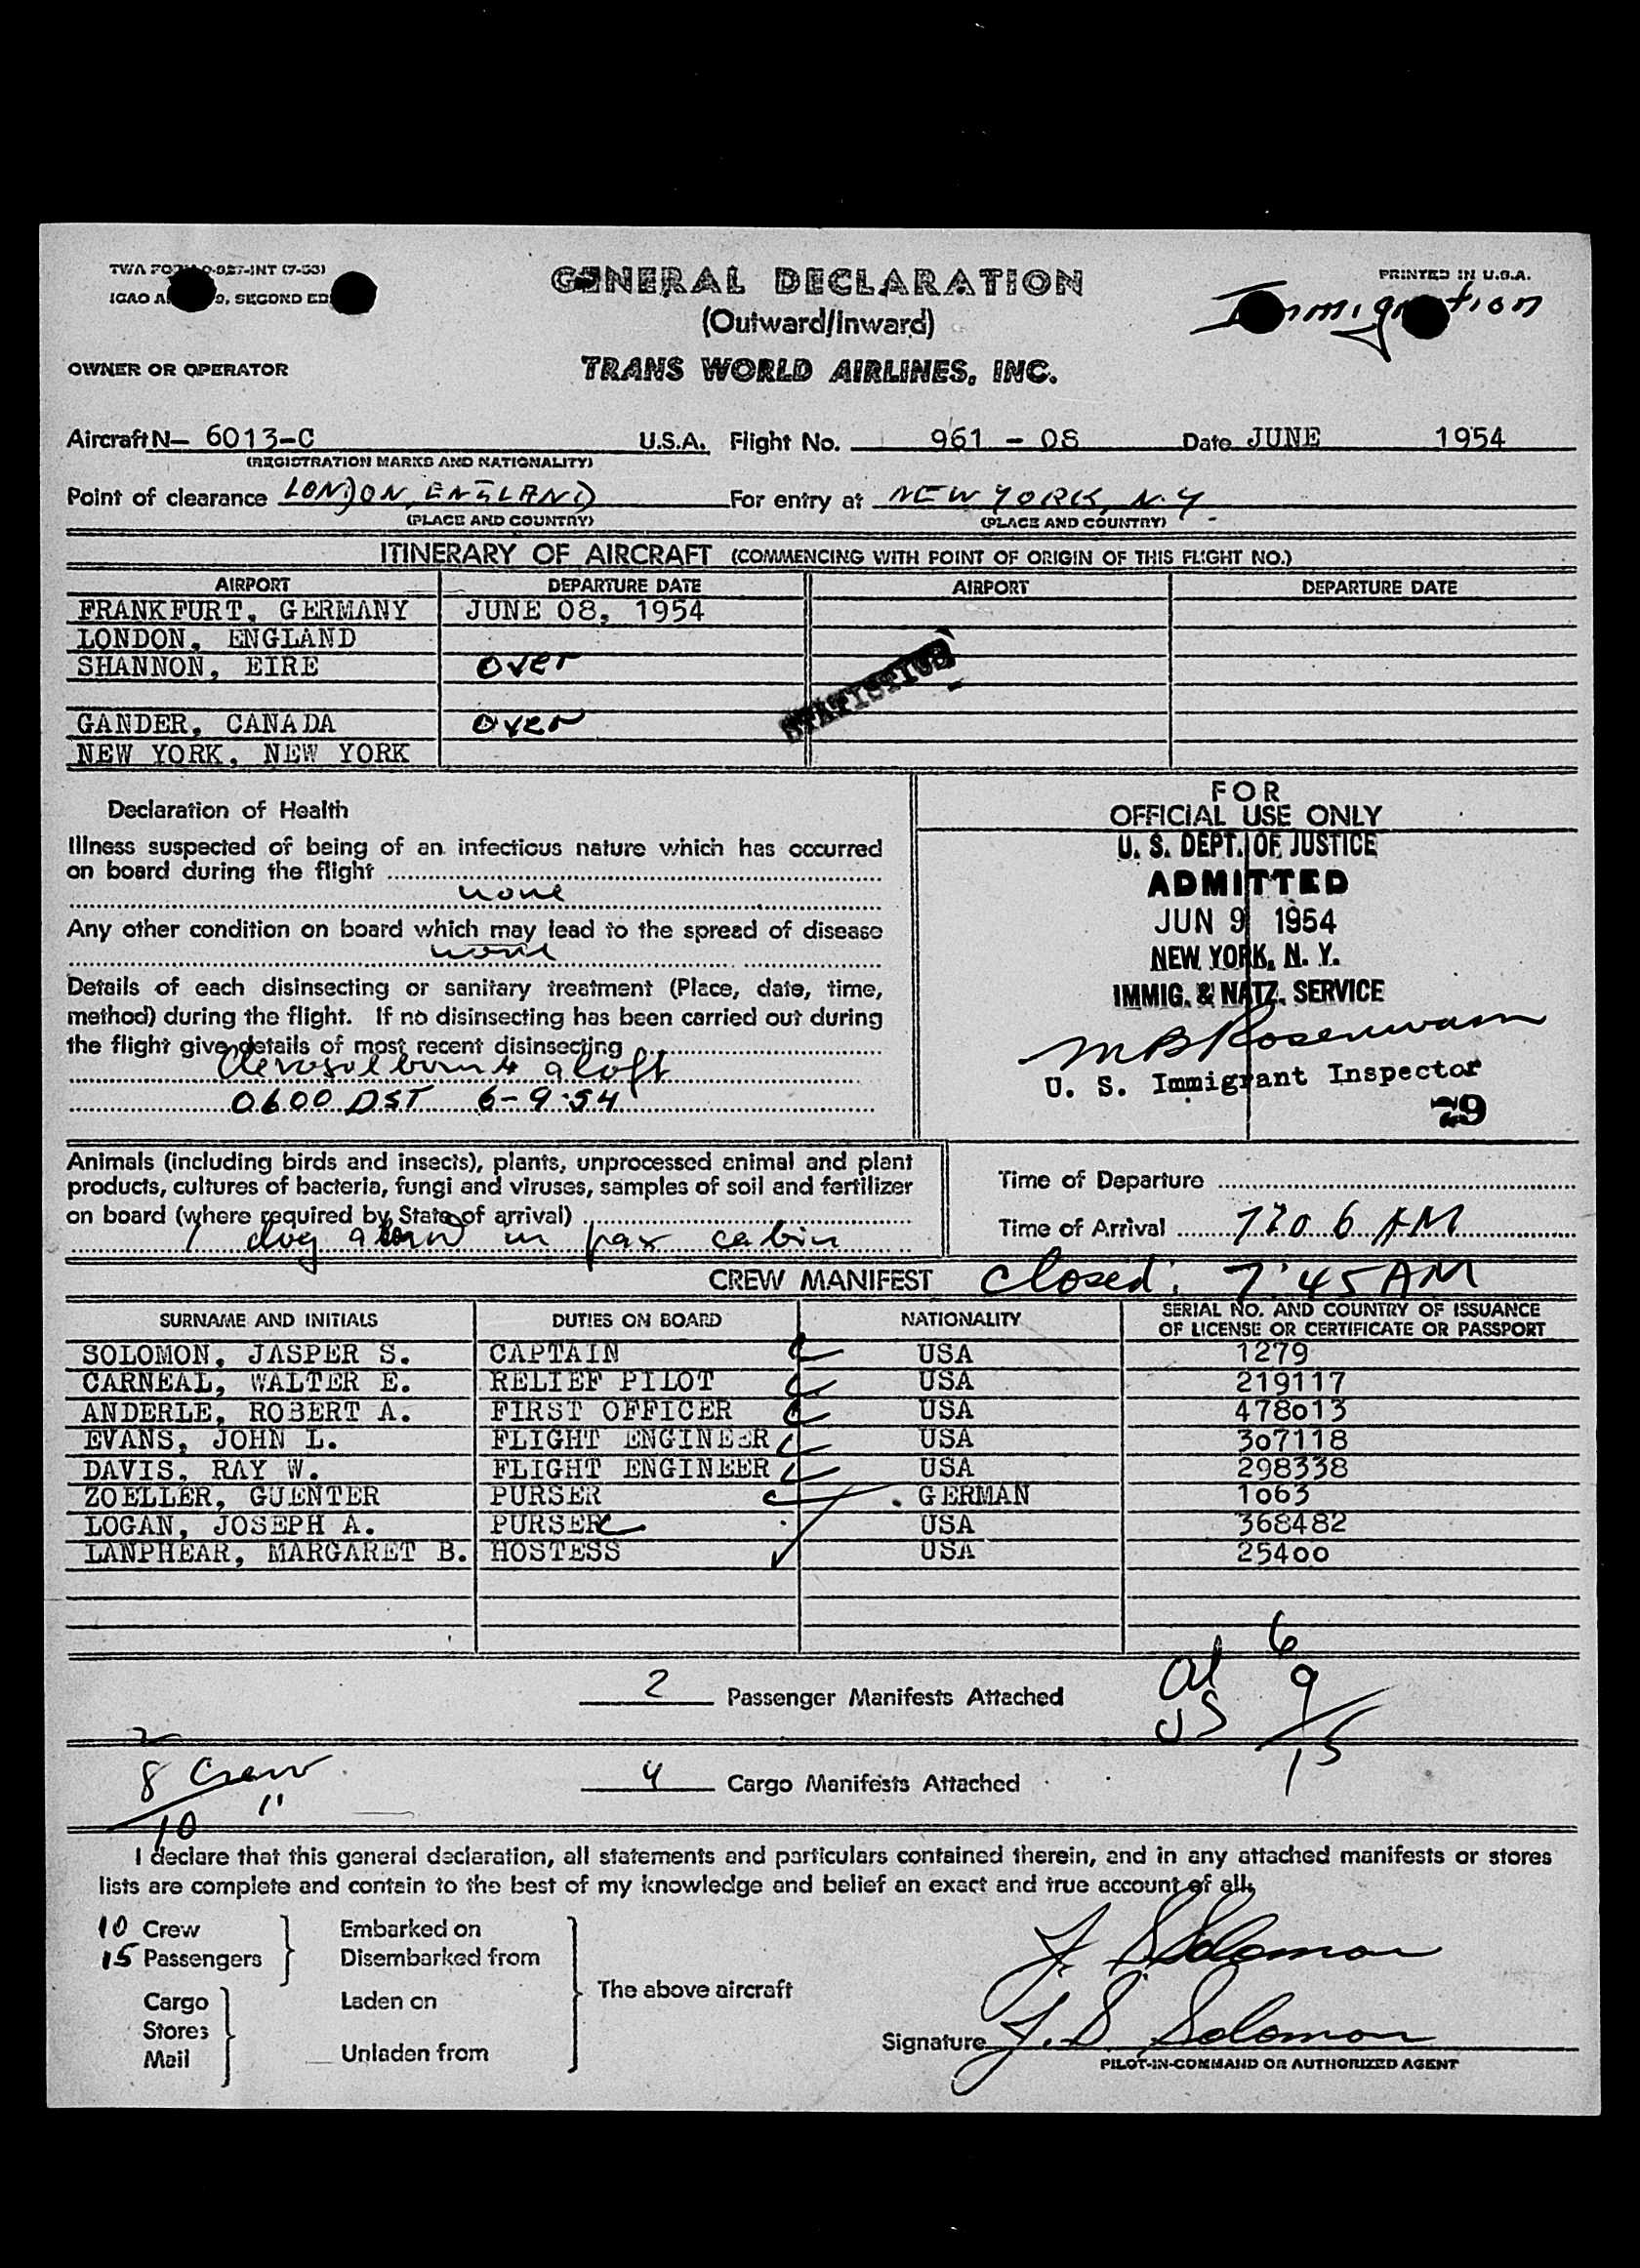 TWA FO 0-927-INT (7-53)
PRINTED IN U.S.A.
GENERAL DECLARATION
ICAO A 9, SECOND ED
(Outward/Inward)
Immigration
OWNER OR OPERATOR
TRANS WORLD AIRLINES, INC.
Aircraft N- 6013-C U.S.A. Flight No. 961 - 08 Date JUNE 1954
(REGISTRATION MARKS AND NATIONALITY)
Point of clearance LONDON, ENGLAND For entry at NEW YORK, N.Y.
(PLACE AND COUNTRY) (PLACE AND COUNTRY)
ITINERARY OF AIRCRAFT (COMMENCING WITH POINT OF ORIGIN OF THIS FLIGHT NO.)
AIRPORT DEPARTURE DATE AIRPORT DEPARTURE DATE
FRANKFURT, GERMANY JUNE 08, 1954
LONDON, ENGLAND
SHANNON, EIRE over
STATISTICS
GANDER, CANADA over
NEW YORK, NEW YORK
Declaration of Health
Illness suspected of being of an infectious nature which has occurred
on board during the flight
none
Any other condition on board which may lead to the spread of disease
none
Details of each disinsecting or sanitary treatment (Place, date, time,
method) during the flight. If no disinsecting has been carried out during
the flight give details of most recent disinsecting
Aerosol bomb aloft
0600 DST 6-9-54
FOR
OFFICIAL USE ONLY
U. S. DEPT. OF JUSTICE
ADMITTED
JUN 9 1954
NEW YORK, N. Y.
IMMIG. & NATZ. SERVICE
U. S. Immigrant Inspector
79
Animals (including birds and insects), plants, unprocessed animal and plant
products, cultures of bacteria, fungi and viruses, samples of soil and fertilizer
on board (where required by State of arrival)
1 dog aboard in pax cabin
Time of Departure
Time of Arrival 7:06 AM
CREW MANIFEST closed: 7:45 AM
SURNAME AND INITIALS DUTIES ON BOARD NATIONALITY SERIAL NO. AND COUNTRY OF ISSUANCE
OF LICENSE OR CERTIFICATE OR PASSPORT
SOLOMON, JASPER S. CAPTAIN USA 1279
CARNEAL, WALTER E. RELIEF PILOT USA 219117
ANDERLE, ROBERT A. FIRST OFFICER USA 478013
EVANS, JOHN L. FLIGHT ENGINEER USA 307118
DAVIS, RAY W. FLIGHT ENGINEER USA 298338
ZOELLER, GUENTER PURSER GERMAN 1063
LOGAN, JOSEPH A. PURSER USA 368482
LANPHEAR, MARGARET B. HOSTESS USA 25400
2 Passenger Manifests Attached
al 6
US 9
15
2
8 Crew
10 "
4 Cargo Manifests Attached
I declare that this general declaration, all statements and particulars contained therein, and in any attached manifests or stores
lists are complete and contain to the best of my knowledge and belief an exact and true account of all
10 Crew
15 Passengers
Embarked on
Disembarked from
Cargo
Stores
Mail
Laden on
Unladen from
The above aircraft
J. S Solomon
Signature J. S. Solomon
PILOT-IN-COMMAND OR AUTHORIZED AGENT